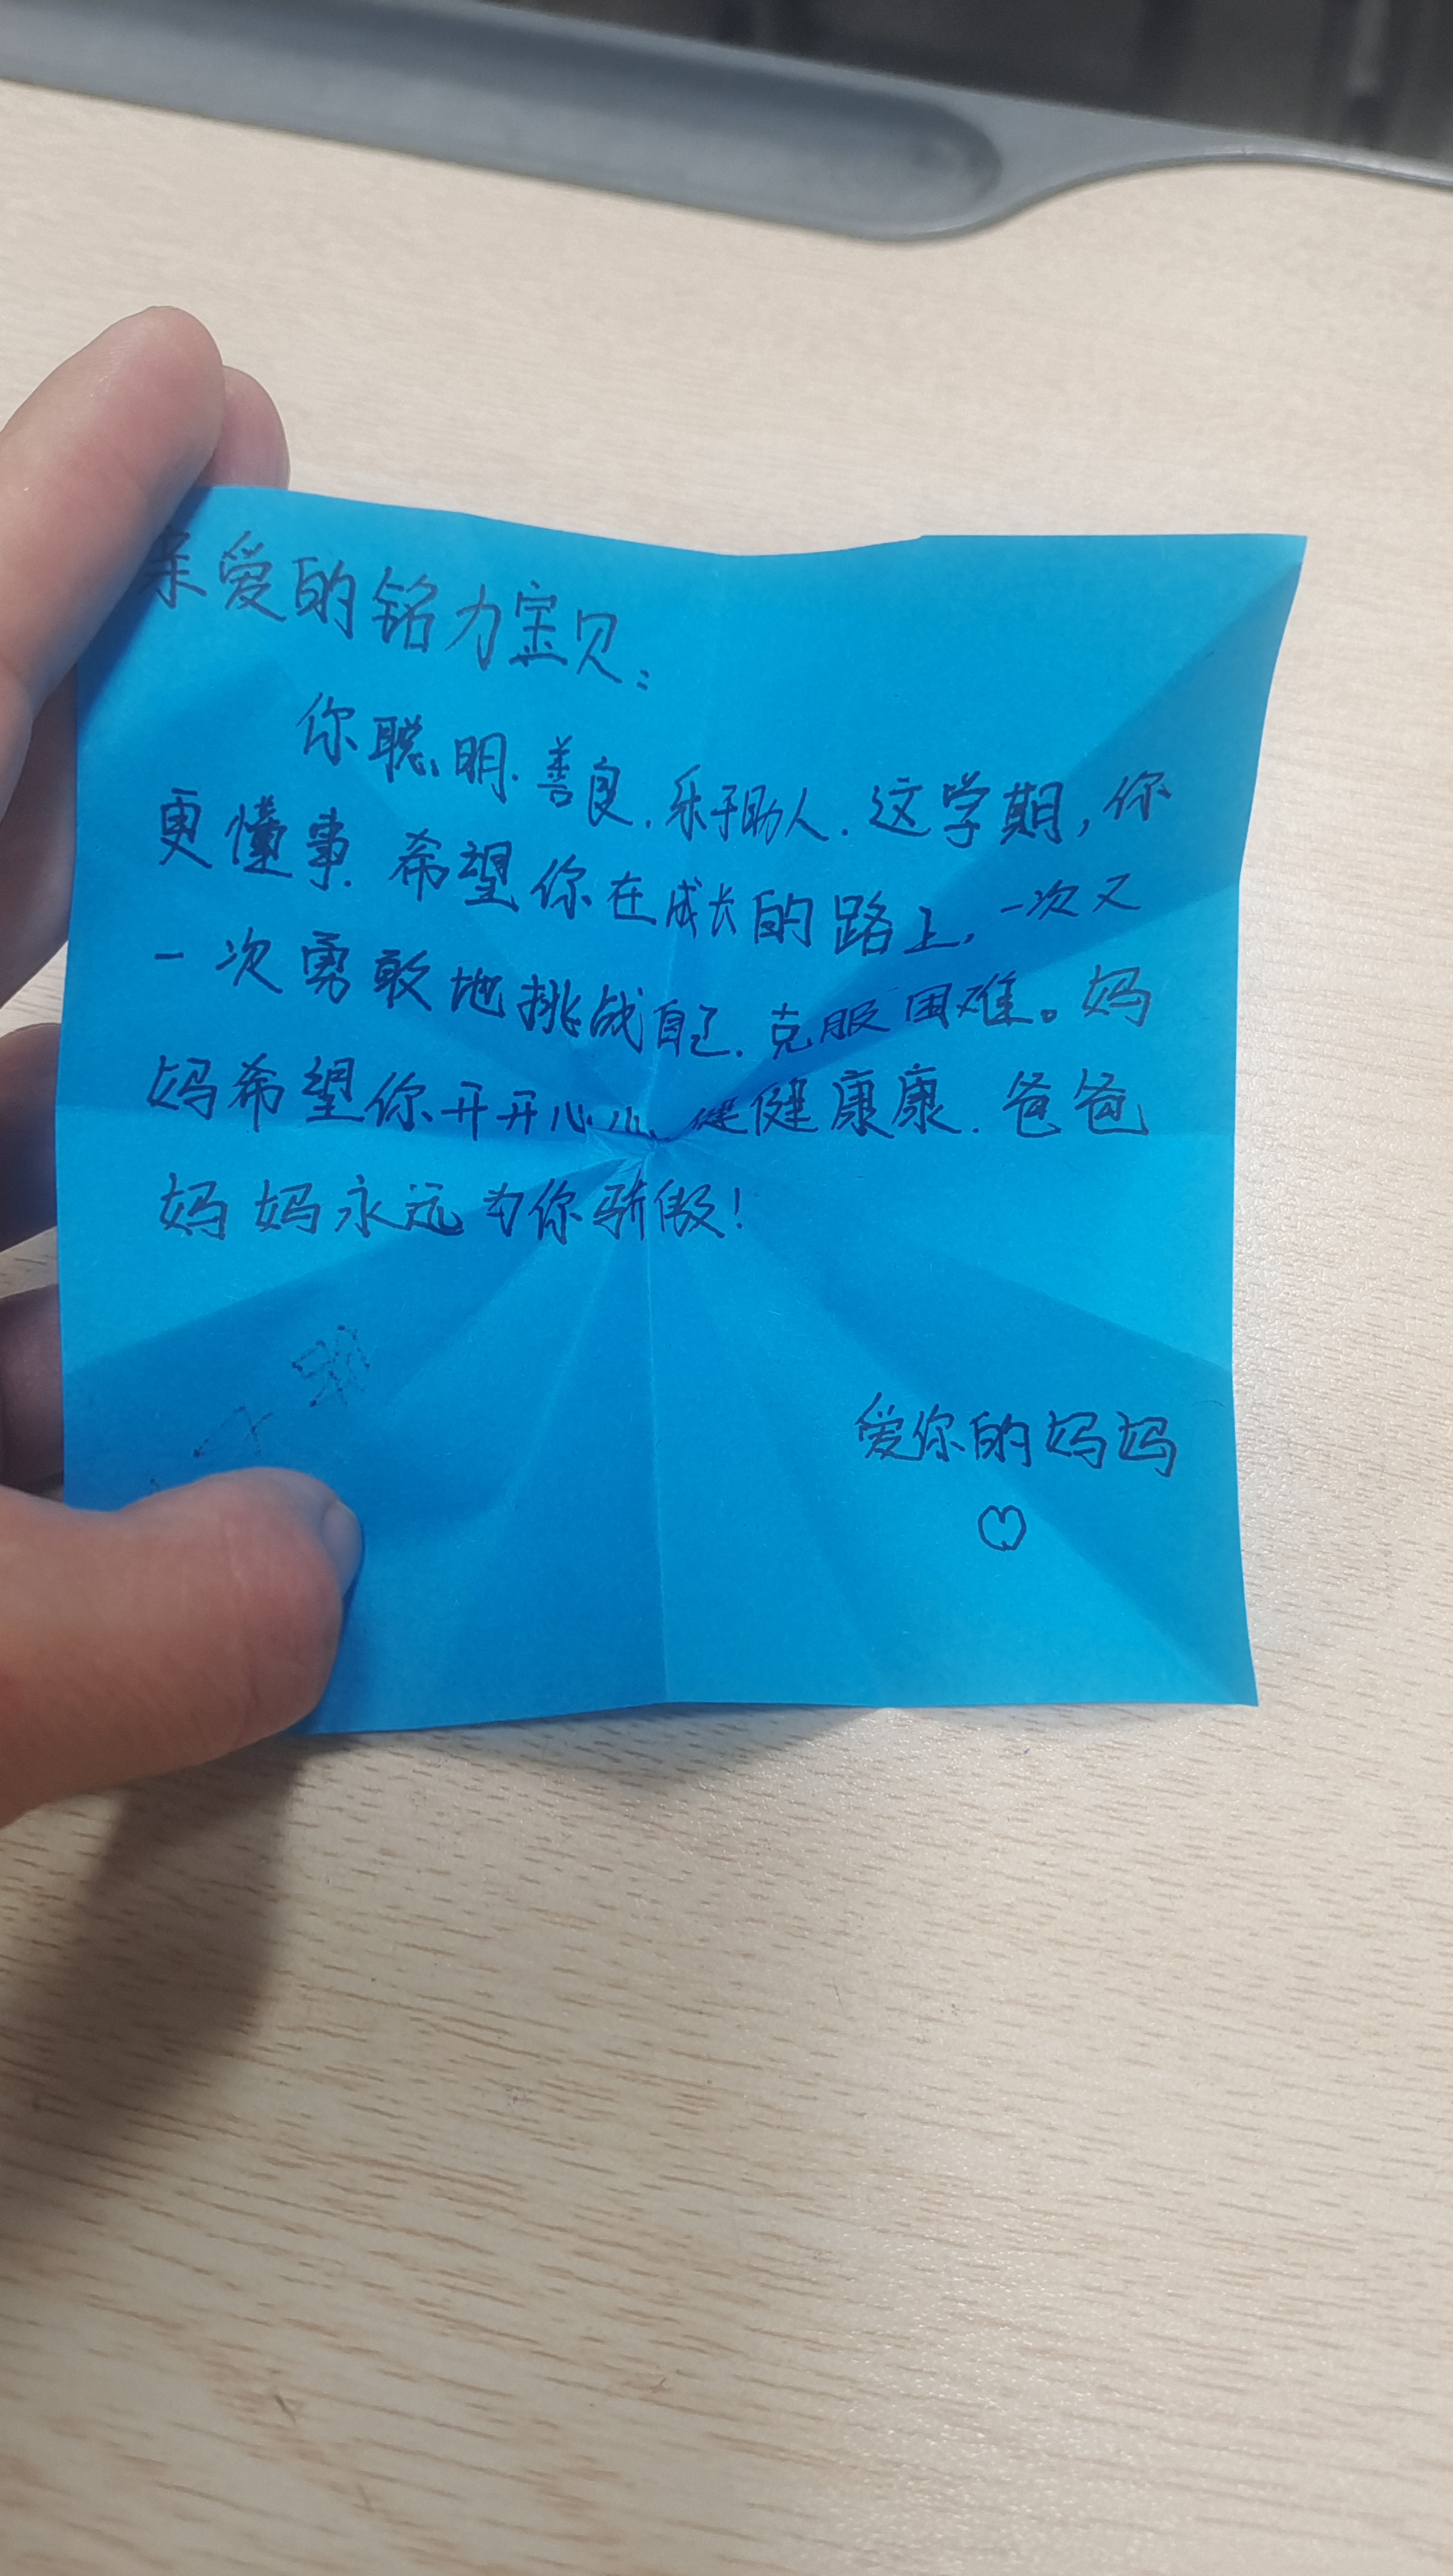 亲爱的铭力宝贝：
你聪明.善良.乐于助人.这学期,你
更懂事.希望你在成长的路上,一次又
一次勇敢地挑战自己.克服困难。妈
妈希望你开开心心、健健康康.爸爸
妈妈永远为你骄傲!
爱你的妈妈